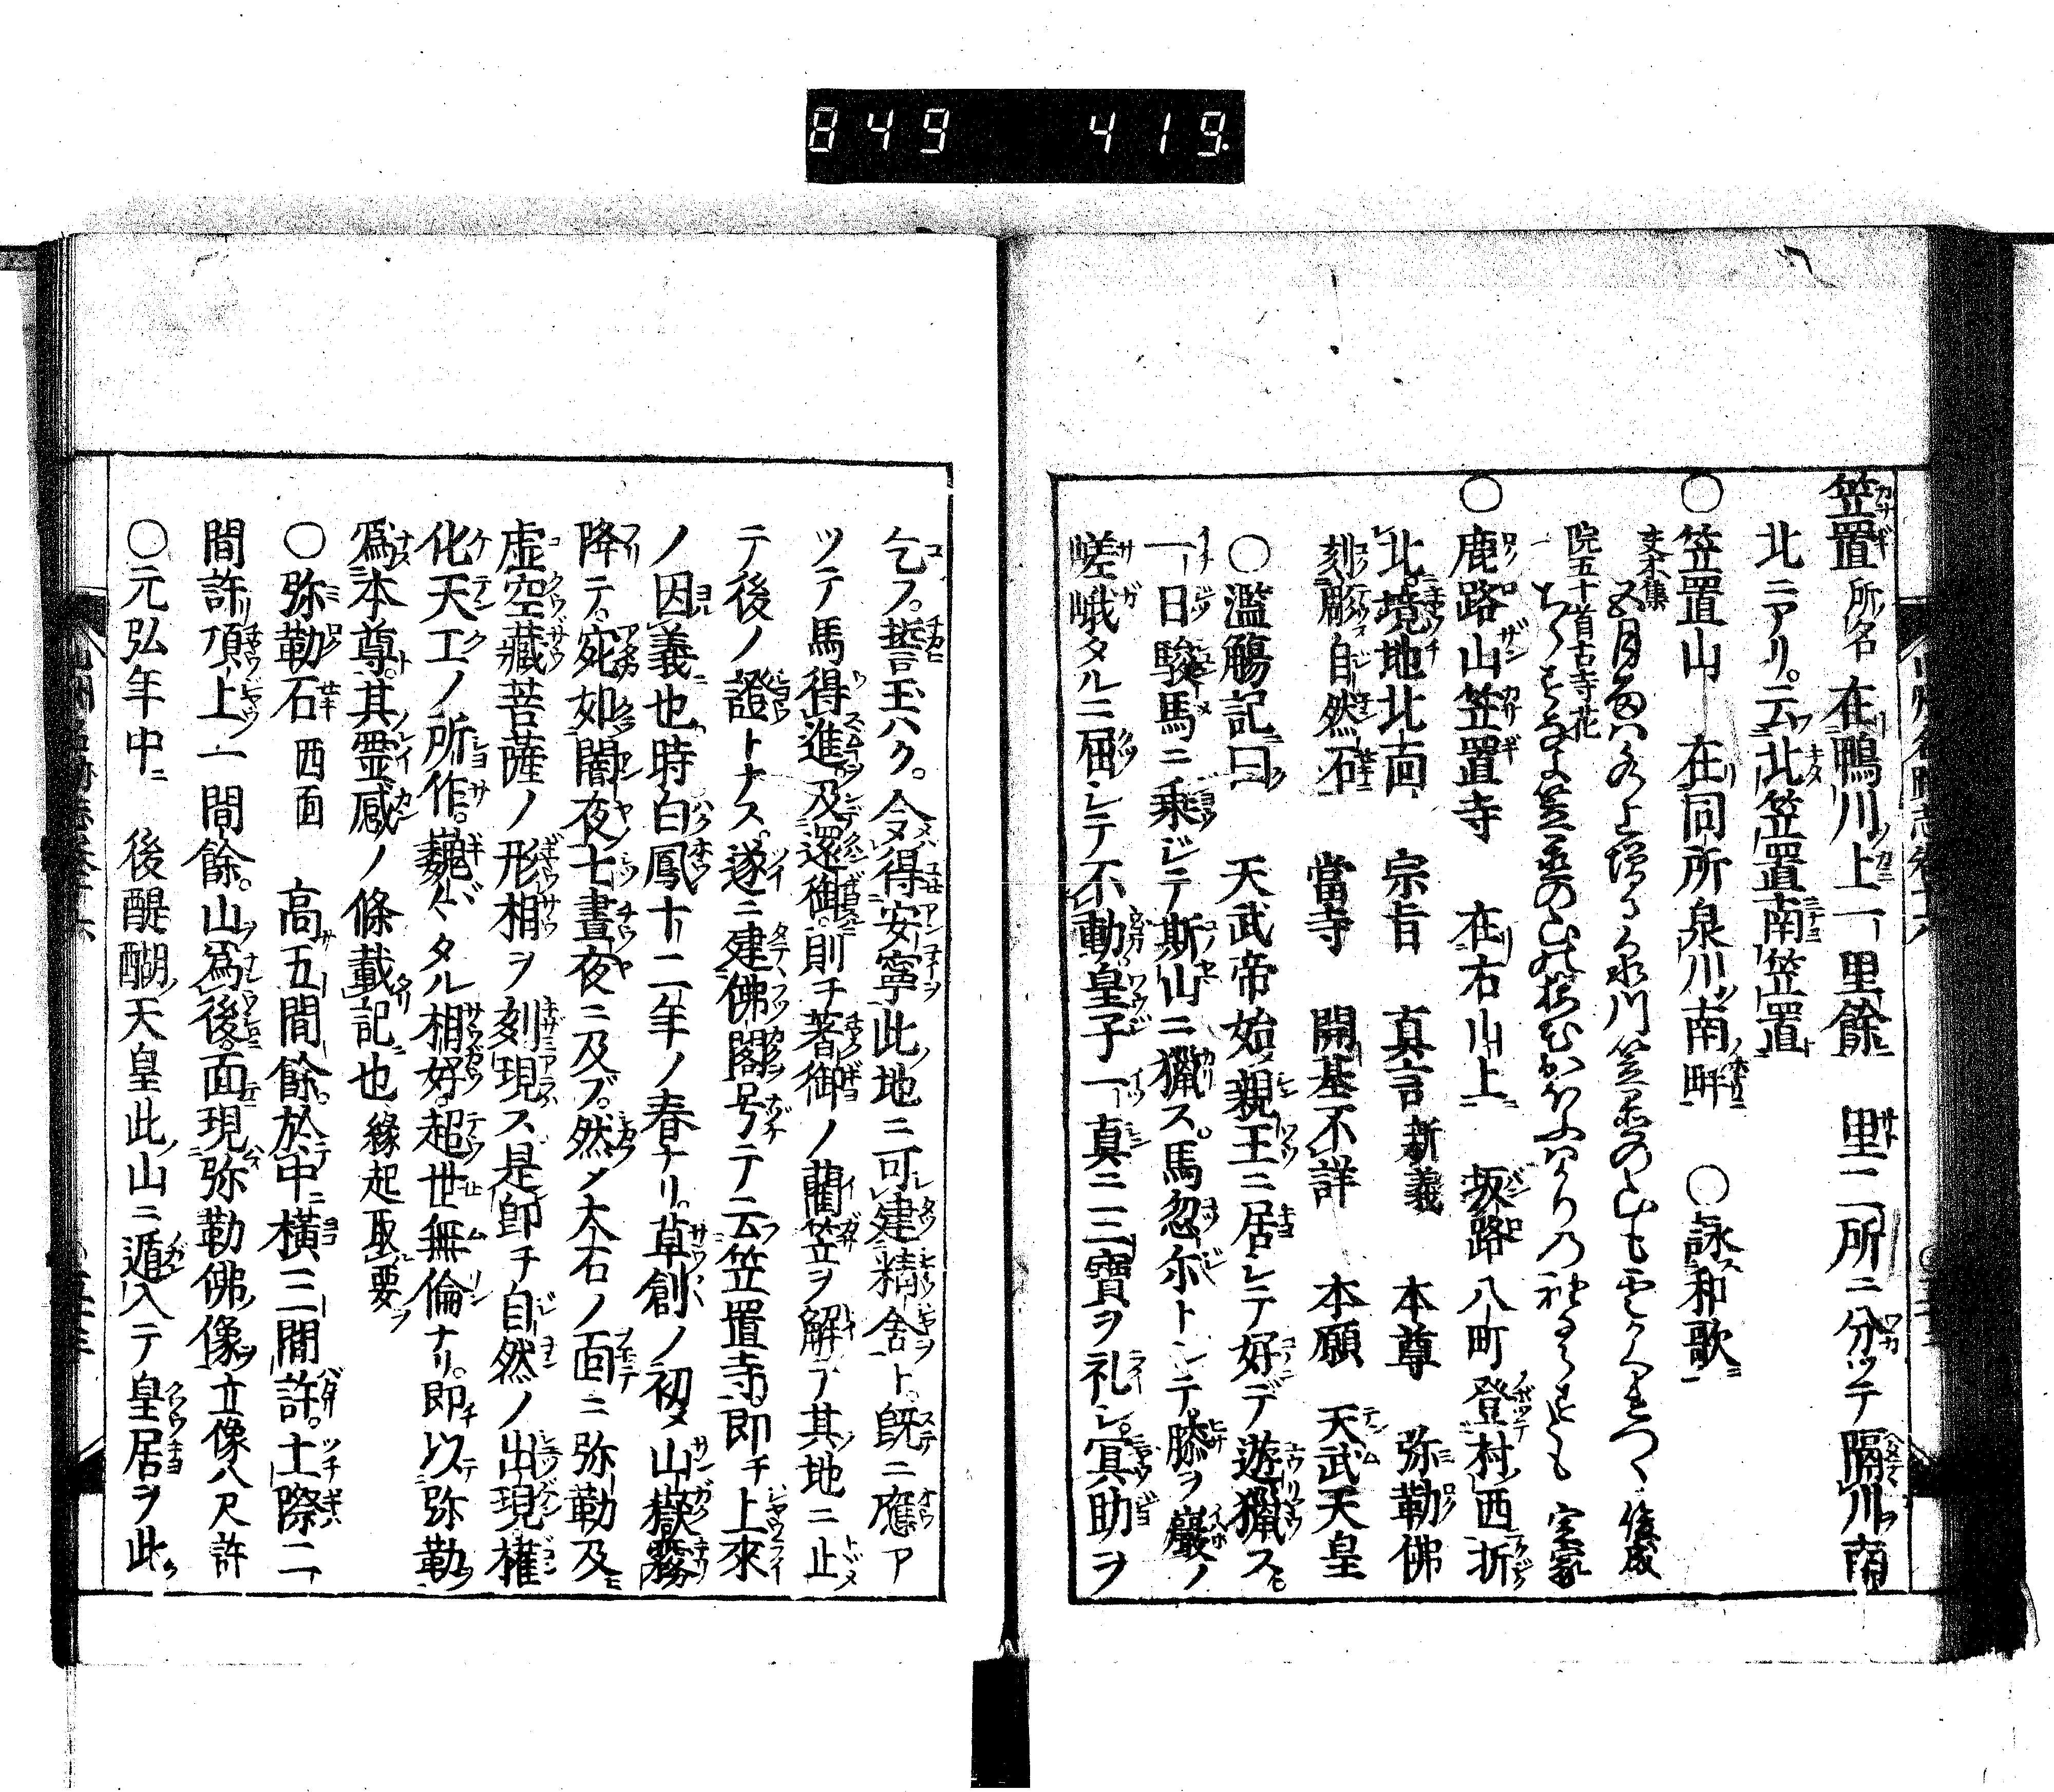 849 419.
笠置 所ノ名 在鴨川上一里餘 里二所ニ分ツテ隔川南
北ニアリ。云北笠置南笠置
○笠置山 在同所泉川南畔 ○詠和歌
夫木集 五月雨は水上増る泉川笠置の山も雲かくれつゝ 俊成
院五十首古寺花
○鹿路山笠置寺 在右川上 坂路八町登村西折
北境地北面 宗旨 真言新義 本尊 弥勒佛
刻彫自然石 當寺 開基不詳 本願 天武天皇
○濫觴記曰 天武帝始親王ニ居シテ好デ遊獵ス
一日駿馬ニ乗ジテ斯山ニ獵ス。馬忽尓トシテ。膝ヲ巖ノ
嵯峨タルニ屈シテ不動皇子一真ニ三寶ヲ礼シ。冥助ヲ
乞フ。誓玉ハク。令メ得安寧此ノ地ニ可建精舎ト。既ニ應ア
ツテ馬得進。及還御則チ著御ノ藺笠ヲ解テ其地ニ止
テ後ノ證トナス。遂ニ建佛閣号テ云笠置寺。即チ上來
ノ因義也時白鳳十二年ノ春ナリ。草創ノ初メ山嶽霧
降テ。宛如闇夜七晝夜ニ及ブ。然メ大石ノ面ニ弥勒及
虚空藏菩薩ノ形相ヲ刻現ス是即チ自然ノ出現權
化天工ノ所作。巍〱タル相好。超世無倫ナリ。即チ以弥勒
為本尊。其霊感ノ條載記也 緣起取要
○弥勒石 西面 高五間餘。於中横三間許。土際二
間許頂上一間餘。山為後。面現弥勒佛像立像八尺許
○元弘年中ニ 後醍醐天皇此山ニ遁入テ皇居ヲ此